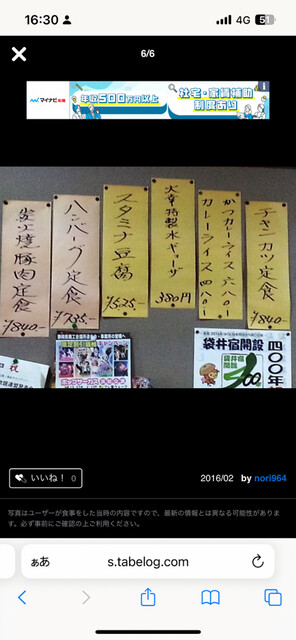 16:30
4G
51
6/6
マイナビ
年収500万円以上
社宅・家賃補助
制度あり
チキンカツ定食
¥840-
かつカレーライス 六八〇-
カレーライス 四八〇-
火章特製水ギョーザ
380円
スタミナ豆腐
¥525-
ハンバーグ定食
¥735-
炭火焼豚肉定食
¥840-
袋井宿開設
四〇〇年
400
いいね!
0
2016/02
by nori964
写真はユーザーが食事をした当時の内容ですので、最新の情報とは異なる可能性があります。必ず事前にご確認の上ご利用ください。
ぁあ
s.tabelog.com